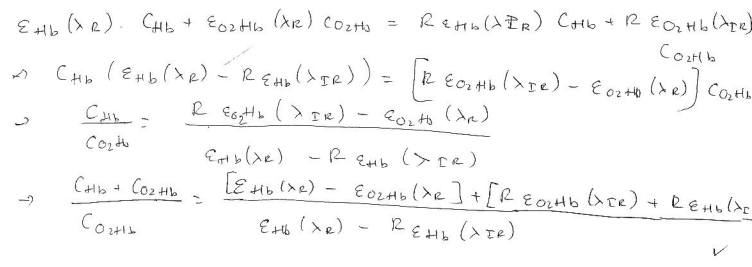 ε_Hb (λ_R) . C_Hb + ε_O2Hb (λ_R) C_O2Hb = R ε_Hb (λ_IR) C_Hb + R ε_O2Hb (λ_IR)
C_O2Hb
→ C_Hb ( ε_Hb (λ_R) - R ε_Hb (λ_IR) ) = [ R ε_O2Hb (λ_IR) - ε_O2Hb (λ_R) ] C_O2Hb
→ C_Hb / C_O2Hb = R ε_O2Hb (λ_IR) - ε_O2Hb (λ_R) / ε_Hb (λ_R) - R ε_Hb (λ_IR)
→ C_Hb + C_O2Hb / C_O2Hb = [ ε_Hb (λ_R) - ε_O2Hb (λ_R ] + [ R ε_O2Hb (λ_IR) + R ε_Hb (λ_I / ε_Hb (λ_R) - R ε_Hb (λ_IR)
✓